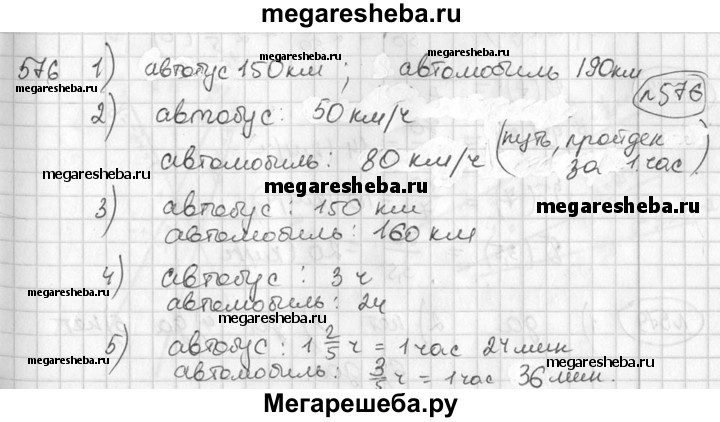 megaresheba.ru
576 1) автобус 150 км; автомобиль 190 км
megaresheba.ru megaresheba.ru megaresheba.ru
№576
2) автобус: 50 км/ч
автомобиль: 80 км/ч (путь, пройден за 1 час)
megaresheba.ru megaresheba.ru megaresheba.ru
3) автобус: 150 км
автомобиль: 160 км
4) автобус: 3 ч
автомобиль: 2ч
megaresheba.ru megaresheba.ru megaresheba.ru
5) автобус: 1 2/5 ч = 1 час 24 мин
автомобиль: 3/5 ч = 1 час 36 мин.
megaresheba.ru megaresheba.ru megaresheba.ru
Мегарешеба.ру